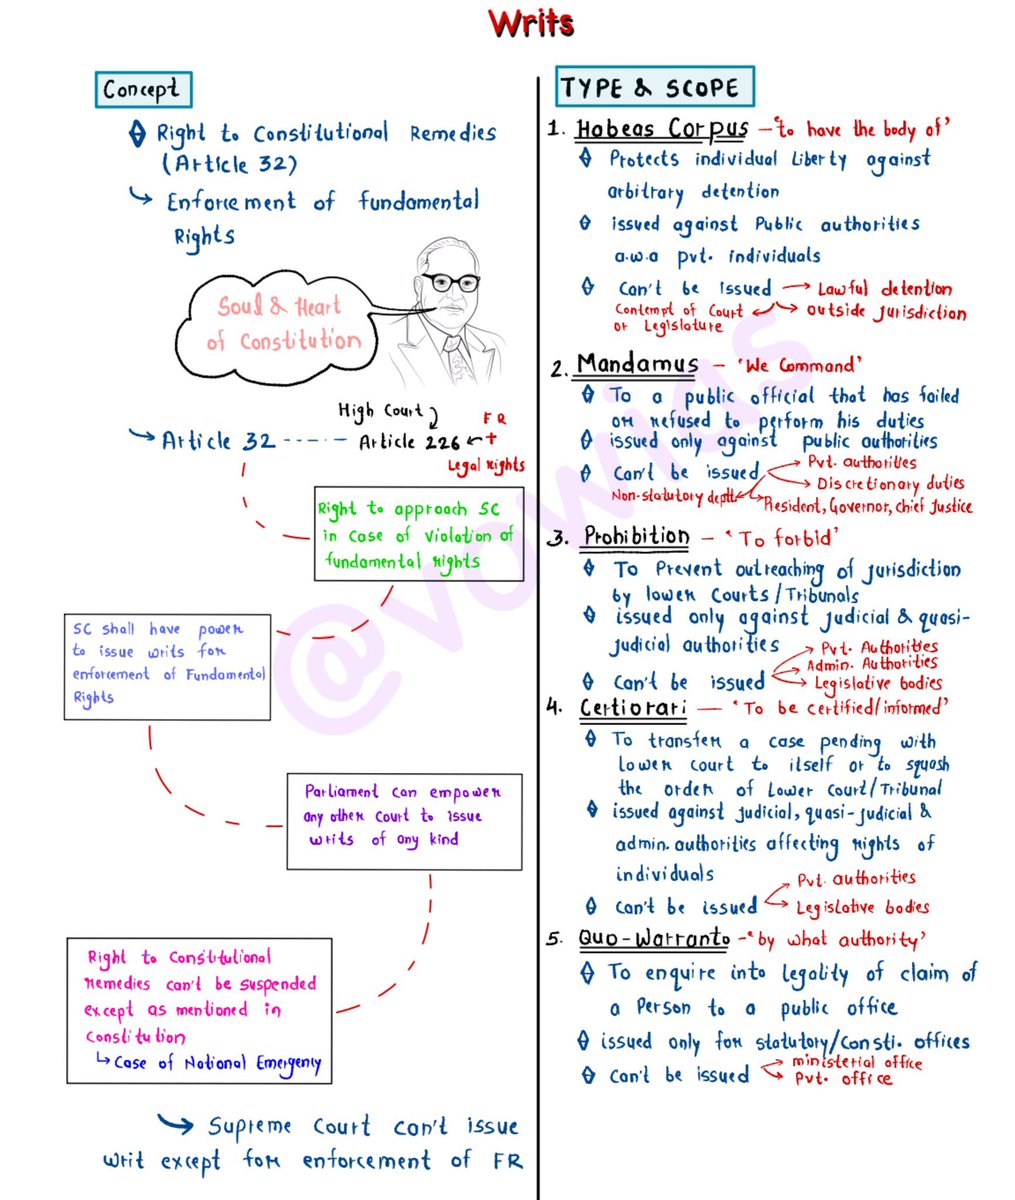 Writs
Concept
Right to Constitutional Remedies
(Article 32)
Enforcement of fundamental
Rights
Soul & Heart
of Constitution
High Court
FR
+
Legal Rights
Article 32 Article 226
Right to approach SC
in case of violation of
fundamental rights
SC shall have power
to issue writs for
enforcement of Fundamental
Rights
Parliament can empower
any other court to issue
writs of any kind
Right to Constitutional
remedies can't be suspended
except as mentioned in
Constitution
Case of National Emergency
Supreme Court can't issue
writ except for enforcement of FR
TYPE & SCOPE
1. Habeas Corpus - 'to have the body of'
Protects individual Liberty against
arbitrary detention
issued against Public authorities
a.w.a pvt. individuals
Can't be issued → Lawful detention
Contempt of Court
or Legislature
outside jurisdiction
2. Mandamus - 'We Command'
To a public official that has failed
or refused to perform his duties
issued only against public authorities
Can't be issued
Pvt. authorities
Discretionary duties
Non-statutory deptt.
President, Governor, chief Justice
3. Prohibition - 'To forbid'
To Prevent outreaching of jurisdiction
by lower Courts/Tribunals
issued only against judicial & quasi-
judicial authorities
Can't be issued
Pvt. Authorities
Admin. Authorities
Legislative bodies
4. Certiorari - 'To be certified/informed'
To transfer a case pending with
lower court to itself or to squash
the order of Lower Court/Tribunal
issued against judicial, quasi-judicial &
admin. authorities affecting rights of
individuals
Can't be issued
Pvt. authorities
Legislative bodies
5. Quo-Warranto - 'by what authority'
To enquire into legality of claim of
a Person to a public office
issued only for statutory/Consti. offices
Can't be issued
ministerial office
Pvt. office
@vowias